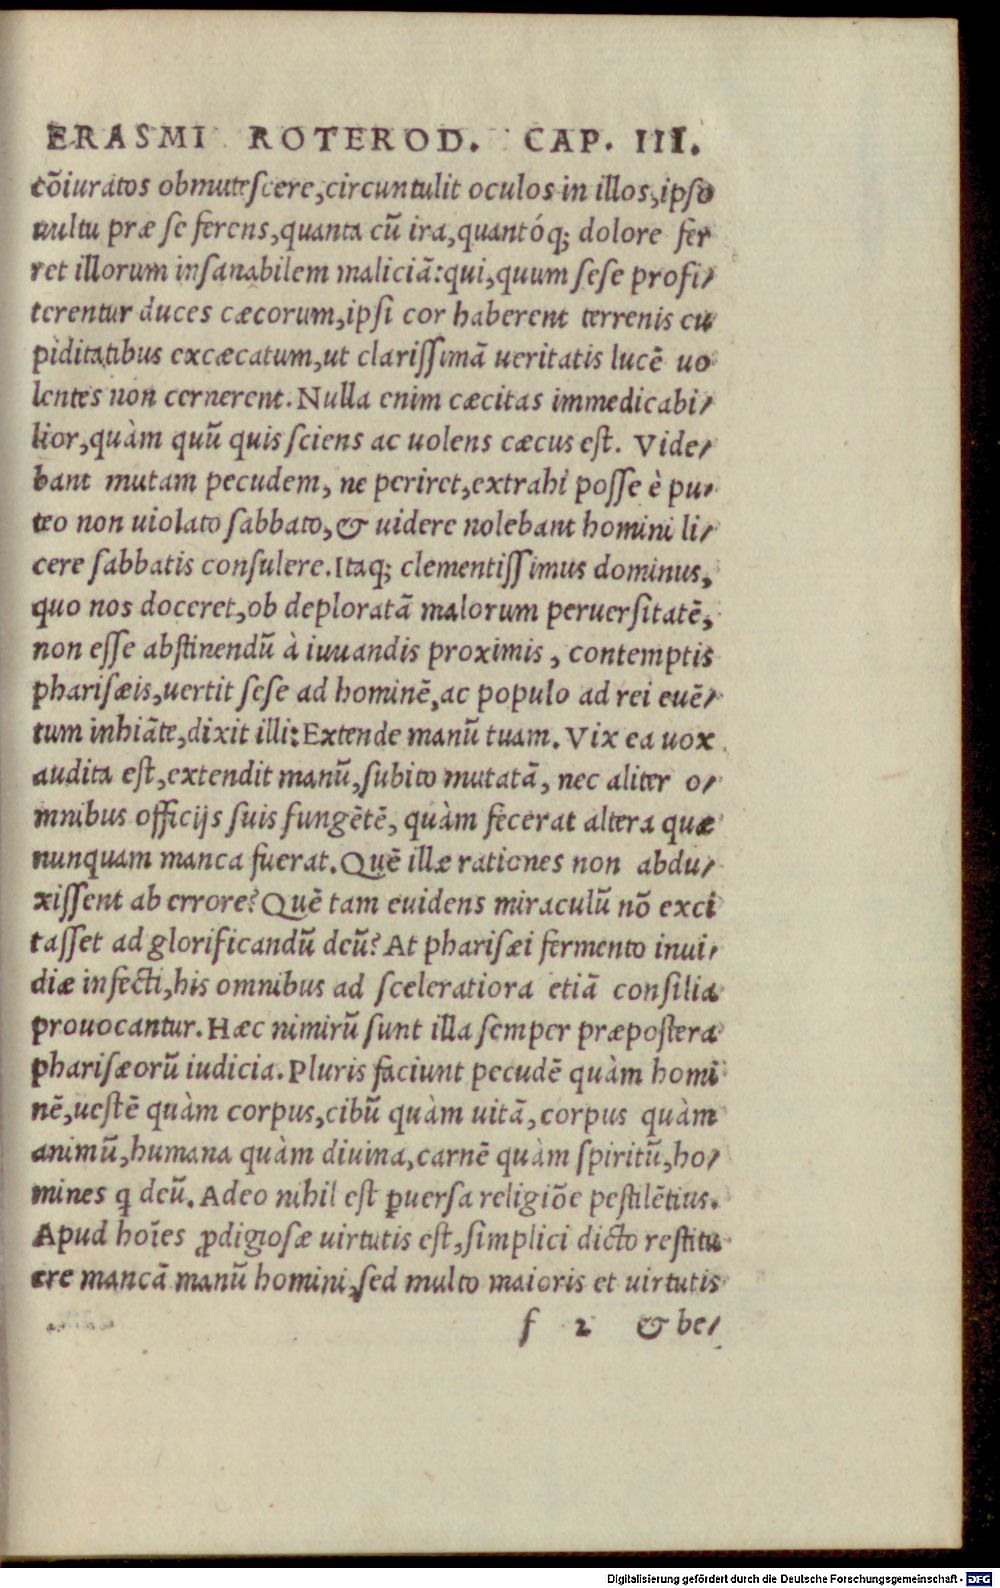 ERASMI ROTEROD. CAP. III.
cōiuratos obmutescere,circuntulit oculos in illos,ipso
uultu præ se ferens,quanta cū ira,quantóq; dolore fer
ret illorum insanabilem maliciā:qui,quum sese profi/
terentur duces cæcorum,ipsi cor haberent terrenis cu
piditatibus excæcatum,ut clarissimā ueritatis lucē uo
lentes non cernerent.Nulla enim cæcitas immedicabi/
lior,quàm quū quis sciens ac uolens cæcus est. Vide/
bant mutam pecudem, ne periret,extrahi posse è pu/
teo non uiolato sabbato,& uidere nolebant homini li/
cere sabbatis consulere.Itaq; clementissimus dominus,
quo nos doceret,ob deploratā malorum peruersitatē,
non esse abstinendū à iuuandis proximis, contemptis
pharisæis,uertit sese ad hominē,ac populo ad rei euē/
tum inhiāte,dixit illi:Extende manū tuam.Vix ea uox
audita est,extendit manū,subito mutatā, nec aliter o/
mnibus officijs suis fungētē, quàm fecerat altera quæ
nunquam manca fuerat.Quē illæ rationes non abdu/
xissent ab errore?Quē tam euidens miraculū nō exci
tasset ad glorificandū deū?At pharisæi fermento inui/
diæ infecti,his omnibus ad sceleratiora etiā consilia
prouocantur.Hæc nimirū sunt illa semper præpostera
pharisæorū iudicia.Pluris faciunt pecudē quàm homi
nē,uestē quàm corpus,cibū quàm uitā,corpus quàm
animū,humana quàm diuina,carnē quàm spiritū,ho/
mines q̄ deū.Adeo nihil est ꝑuersa religiōe pestilētius.
Apud hoīes ꝓdigiosæ uirtutis est,simplici dicto restitu
ere mancā manū homini,sed multo maioris et uirtutis
f 2 & be/
Digitalisierung gefördert durch die Deutsche Forschungsgemeinschaft - DFG